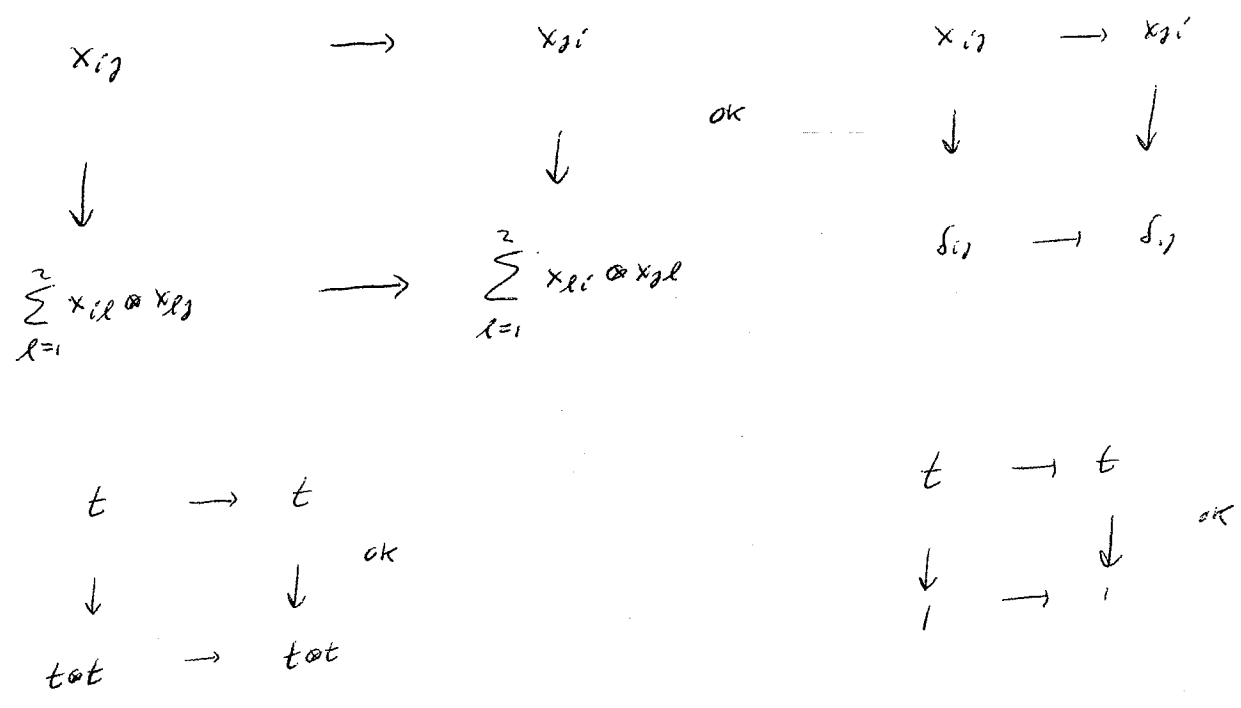 x_{ij} → x_{ji}
↓ ↓ ok
\sum_{l=1}^{2} x_{il} ⊗ x_{lj} → \sum_{l=1}^{2} x_{li} ⊗ x_{jl}
x_{ij} → x_{ji}
↓ ↓
δ_{ij} → δ_{ij}
t → t
↓ ↓ ok
t⊗t → t⊗t
t → t
↓ ↓ ok
1 → 1